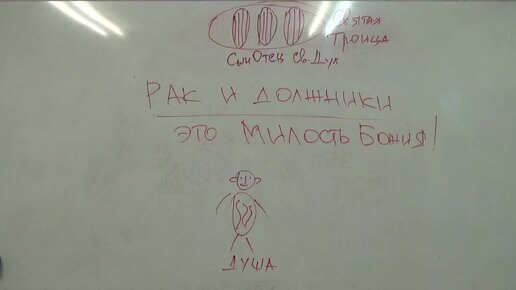 Святая
Троица
Сын Отец Св. Дух
РАК И ДОЛЖНИКИ
ЭТО МИЛОСТЬ БОЖИЯ!
ДУША